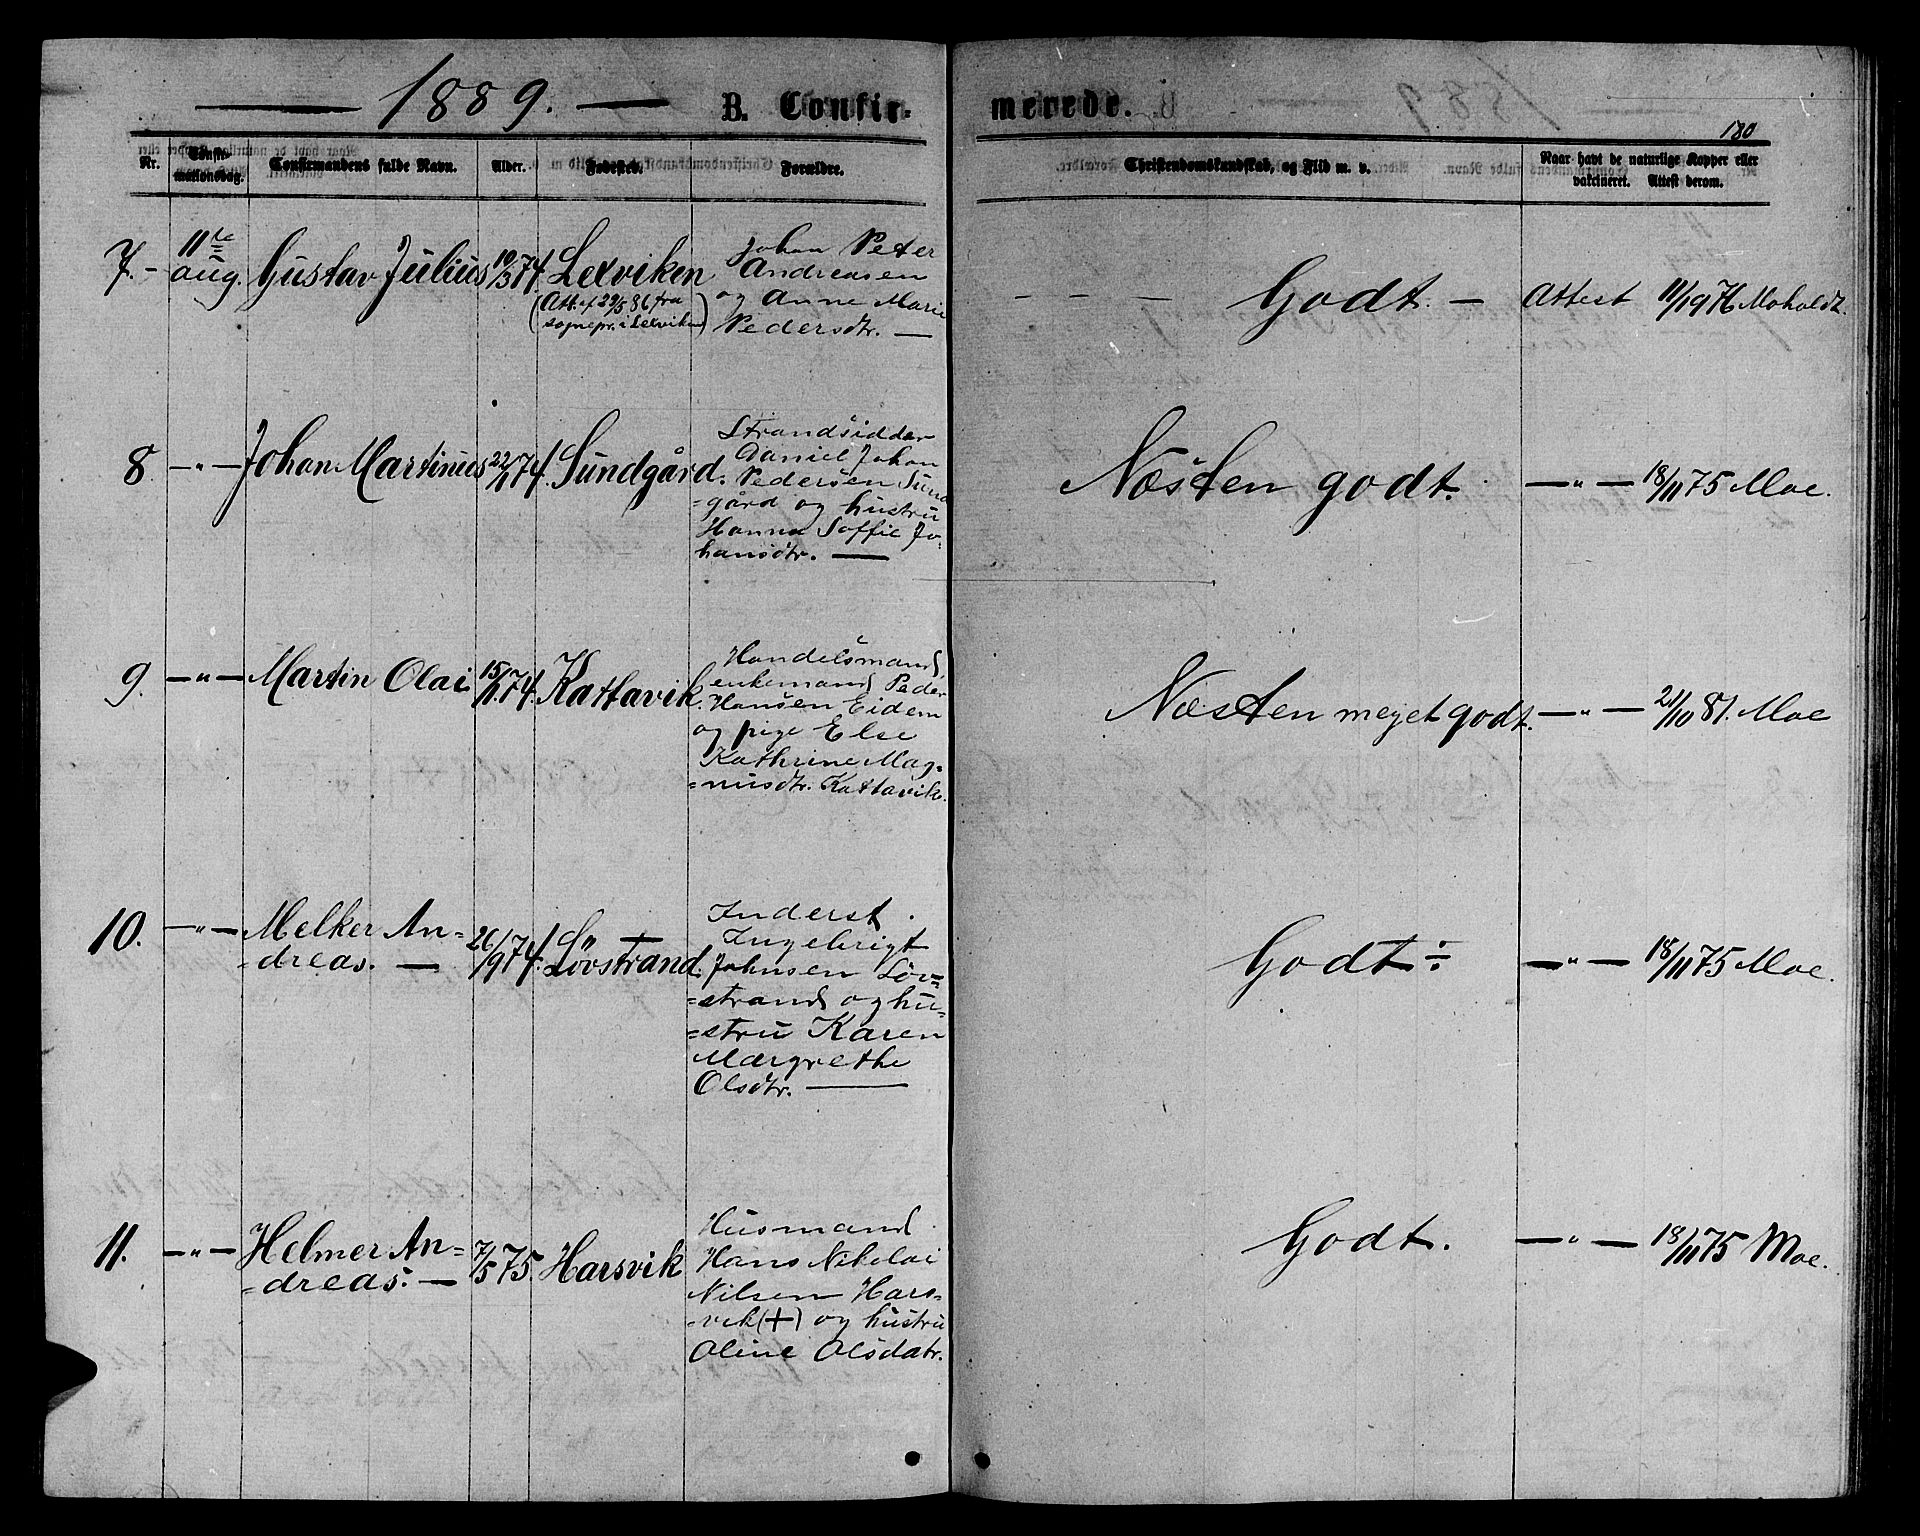 1889. B. Confirmerede.
180
Nr. Confirmationsdag. Confirmandens fulde Navn. Alder. Fødested. Forældre. Christendomskundskab, og Flid m. v. Naar havt de naturlige Kopper eller vakcineret. Attest derom.
7. 11te aug. Gustav Julius 10/3 74. Lexviken
(Att. af 29/5 86 fra
sognepr. i Lexviken)
Johan Peter
Andreasen
og Anne Marie
Pedersdtr. —
Godt. — Attest 11/9 76 Moholdt.
8. —"— Johan Martinus 22/ 74. Sundgård.
Strandsidder
Daniel Johan
Pedersen Sund
=gård og hustru
Hanna Soffie Jo=
hansdtr. —
Næsten godt. —"— 18/11 75 Moe.
9. —"— Martin Olai 15/11 74. Kattavik.
Handelsmand,
enkemand Peder
Hansen Eidem
og pige Else
Kathrine Mag=
=nusdtr. Kattavik.
Næsten meget godt. —"— 21/10 81. Moe
10. —"— Melker An=
=dreas. — 26/9 74. Lövstrand.
Inderst
Ingebrigt
Johnsen Löv=
=strand og hu=
=stru Karen
Margrethe
Olsdtr. —
Godt ÷ —"— 18/11 75 Moe.
11. —"— Helmer An=
=dreas. — 7/5 75. Harsvik
Husmand
Hans Nikolai
Nilsen Hars=
=vik (+) og hustru
Oline Olsdatr.
Godt. —"— 18/11 75 Moe.